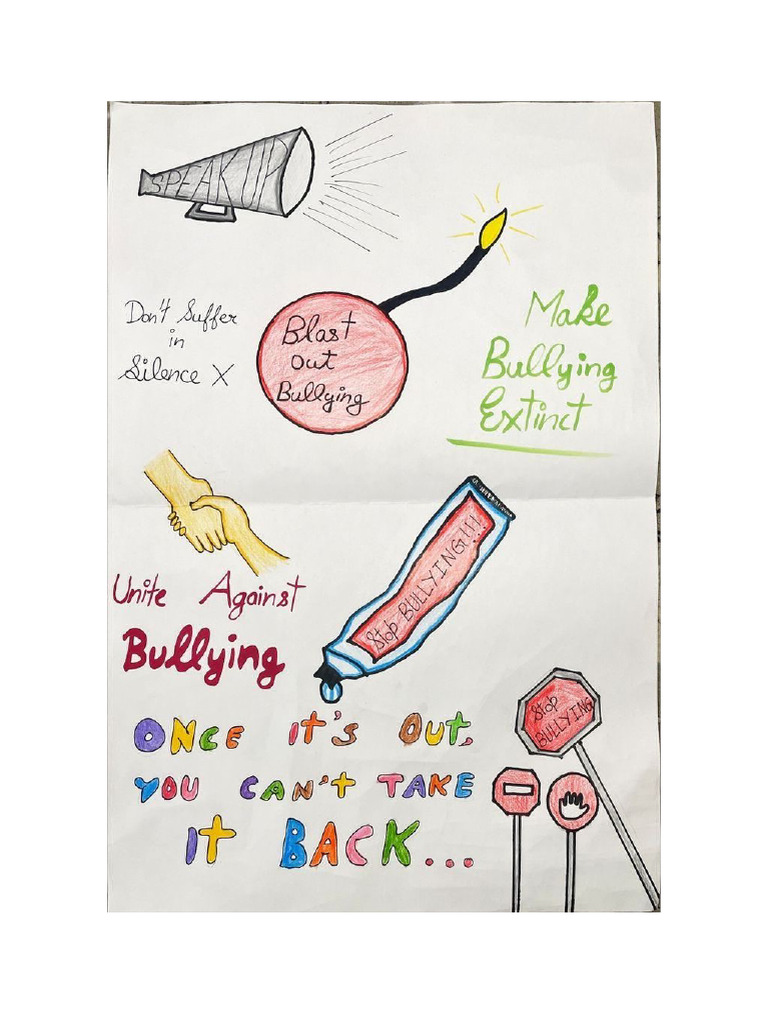 SPEAK UP
Don't Suffer
in
Silence X
Blast
Out
Bullying
Make
Bullying
Extinct
Unite Against
Bullying
Stop BULLYING!!!
ONCE IT'S OUT,
YOU CAN'T TAKE
IT BACK...
Stop
BULLYING